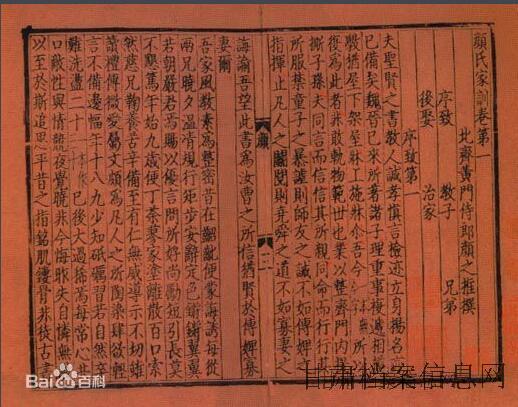 顔氏家訓卷第一
北齊黃門侍郎顔之推撰
序致 教子 兄弟
後娶 治家
序致第一
夫聖賢之書教人誠孝慎言檢迹立身揚名
已備矣魏晉已來所著諸子理重事複遞相
斆猶屋下架屋牀上施牀尒吾今所以
復為此者非敢軌物範世也業以整齊門内
撕子孫夫同言而信信其所親同命而行行
所服禁童子之暴謔則師友之誡不如傅婢之
指揮止凡人之鬬鬩則堯舜之道不如寡妻之
誨諭吾望此書為汝曹之所信猶賢於傅婢寡
妻爾
吾家風教素為整密昔在齠齔便蒙誨誘每從
兩兄曉夕温凊規行矩步安辭定色鏘鏘翼翼
若朝嚴君焉賜以優言問所好尚勵短引長莫
不懇篤年始九歲便丁荼蓼家塗離散百口索
然慈兄鞠養苦辛備至有仁無威導示不切雖
讀禮傳微愛屬文頗為凡人之所陶染肆欲輕
言不備邊幅年十八九少知砥礪習若自然卒
難洗盪二十已後大過稀焉每常心
口敵性與情競夜覺曉非今悔昨失自憐無
以至於斯追思平昔之指銘肌鏤骨非徒古書
顔
Baidu百科
甘肃档案信息网